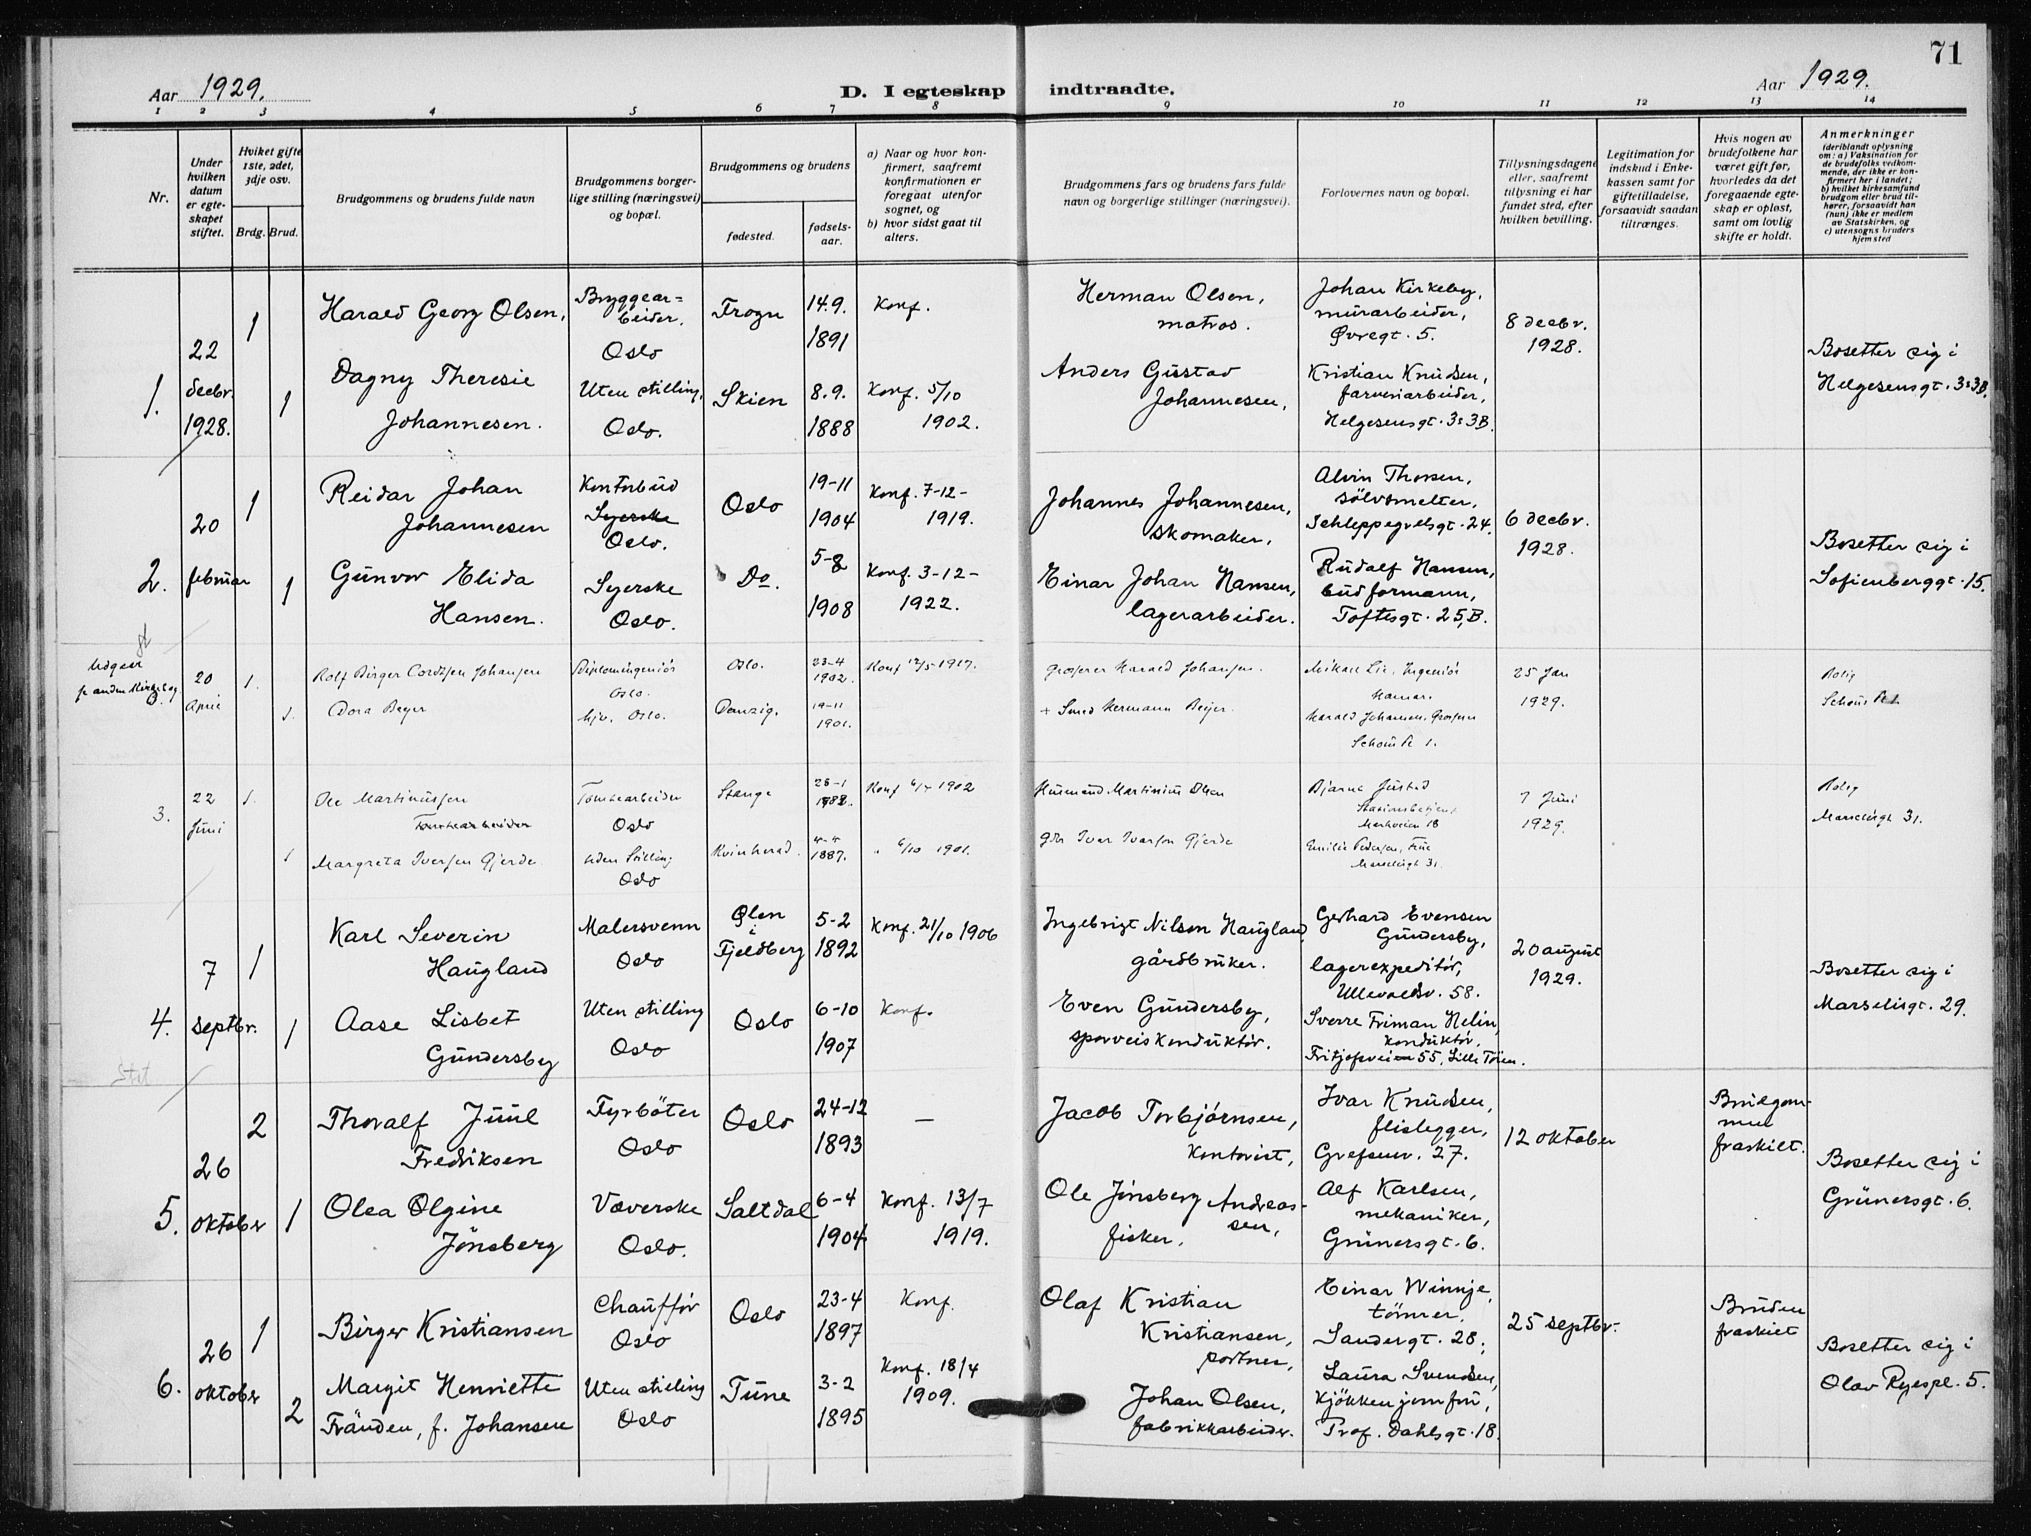 71
Aar 1929.
D. I egteskap indtraadte.
Aar 1929.
1 2 3 4 5 6 7 8 9 10 11 12 13 14
Nr.
Under hvilken datum er egteskapet stiftet.
Hviket gifte 1ste, 2det, 3dje osv.
Brdg. Brud.
Brudgommens og brudens fulde navn
Brudgommens borgerlige stilling (næringsvei) og bopæl.
Brudgommens og brudens
fødested.
fødselsaar.
a) Naar og hvor konfirmert, saafremt konfirmationen er foregaat utenfor sognet, og
b) hvor sidst gaat til alters.
Brudgommens fars og brudens fars fulde navn og borgerlige stillinger (næringsvei).
Forlovernes navn og bopæl.
Tillysningsdagene eller, saafremt tillysning ei har fundet sted, efter hvilken bevilling.
Legitimation for indskud i Enkekassen samt for giftetilladelse, forsaavidt saadan tiltrænges.
Hvis nogen av brudefolkene har været gift før, hvorledes da det foregaaende egteskap er opløst, samt om lovlig skifte er holdt.
Anmerkninger
(deriblandt oplysning om: a) Vaksination for de brudefolks vedkommende, der ikke er konfirmert her i landet; b) hvilket kirkesamfund brudgom eller brud tilhører, forsaavidt han (hun) ikke er medlem av Statskirken, og c) utensogns bruders hjemsted
1.
22 decbr. 1928.
1
Harald Georg Olsen,
Bryggearbeider. Oslo
Frogn
14.9. 1891
Konf.
Herman Olsen, matros.
Johan Kirkeby, murarbeider, Øvregt. 5.
8 decbr. 1928.
1
Dagny Theresie Johannesen.
Uten stilling, Oslo.
Skien
8.9. 1888
Konf. 5/10 1902.
Anders Gustav Johannesen,
Kristian Knudsen, farveriarbeider, Helgesensgt. 3:3B.
Bosetter sig i Helgesensgt. 3:3B.
2.
20 februar
1
Reidar Johan Johannesen
Kontorbud Syerske Oslo.
Oslo
19-11 1904
Konf. 7-12-1919.
Johannes Johannesen, skomaker.
Alvin Thorsen, sölvsmelter, Schleppegrelsgt. 24.
6 decbr. 1928.
1
Gunvor Elida Hansen.
Syerske Oslo.
Do.
5-8 1908
Konf. 3-12-1922.
Einar Johan Hansen, lagerarbeider.
Rudolf Hansen, budformann, Toftesgt. 25,B.
Bosetter sig i Sofienberggt. 15.
Udgaar
fr anden Kirkebog
20 April
1.
Rolf Birger Cordtsen Johansen
Diplomingeniör Oslo.
Oslo.
23-4 1902.
Konf 12/5 1917.
Grosserer Harald Johansen.
Mikael Lie, Ingeniör Hamar.
25 Jan 1929.
1.
Dora Beyer
hjv. Oslo.
Danzig.
19-11 1901.
+ Smed Hermann Beyer.
Harald Johansen, Grosserer Schous Pl 1.
Bolig Schous Pl 1
3.
22 Juni
1.
Ole Martinussen
Tomtearbeider
Tomtearbeider Oslo
Stange
28-1 1888.
1902
Husmand Martinius Olsen
Bjarne Justad Stationsbetjent Markveien 18
7 Juni 1929.
1
Margreta Iversen Gjerde.
uden Stilling Oslo
Kvinherad.
4-4 1887.
" 6/10 1901.
Gbr Ivar Iversen Gjerde
Emilie Pedersen, Frue Marseliisgt 31
Bolig
Marseliisgt 31.
4.
7 septbr.
1
Karl Severin Haugland
Malersvenn Oslo
Ølen i Fjeldberg
5-2 1892
Konf. 21/10 1906
Ingebrigt Nilson Haugland, gårdbruker.
Gerhard Evensen Gundersby, lagerexpeditör, Ullevaalsv. 58.
20 august 1929.
1
Aase Lisbet Gundersby
Uten stilling Oslo
Oslo
6-10 1907
Konf.
Even Gundersby, sporveiskonduktør.
Sverre Friman Helin, konduktør, Fritjofsveien 55, Lille Tøien.
Bosetter sig i Marselisgt. 29.
5.
26 oktober
2
Thoralf Juul Fredriksen
Fyrböter Oslo
Oslo
24-12 1893
—
Jacob Torbjørnsen, kontorist,
Ivar Knudsen, flislegger, Grefsenv. 27.
12 oktober
Brudgommen fraskilt.
1
Olea Olgine Jönsberg
Væverske Oslo.
Saltdal
6-4 1904
Konf. 13/7 1919.
Ole Jönsberg Andreassen, fisker.
Alf Karlsen, mekaniker, Grünersgt. 6.
Bosetter sig i Grünersgt. 6.
6.
26 oktober
1
Birger Kristiansen
Chauffør Oslo
Oslo
23-4 1897
Konf.
Olaf Kristian Kristiansen, portner,
Einar Winnje, tömrer, Sandergt. 28;
25 septbr.
Bruden fraskilt
2
Margit Henriette Frånden, f. Johansen
Uten stilling Oslo
Tune
3-2 1895
Konf. 18/4 1909.
Johan Olsen, fabrikkarbeider.
Laura Svendsen, kjökkenjomfru, Prof. Dahlsgt. 18.
Bosetter sig i Olav Ryespl. 5.